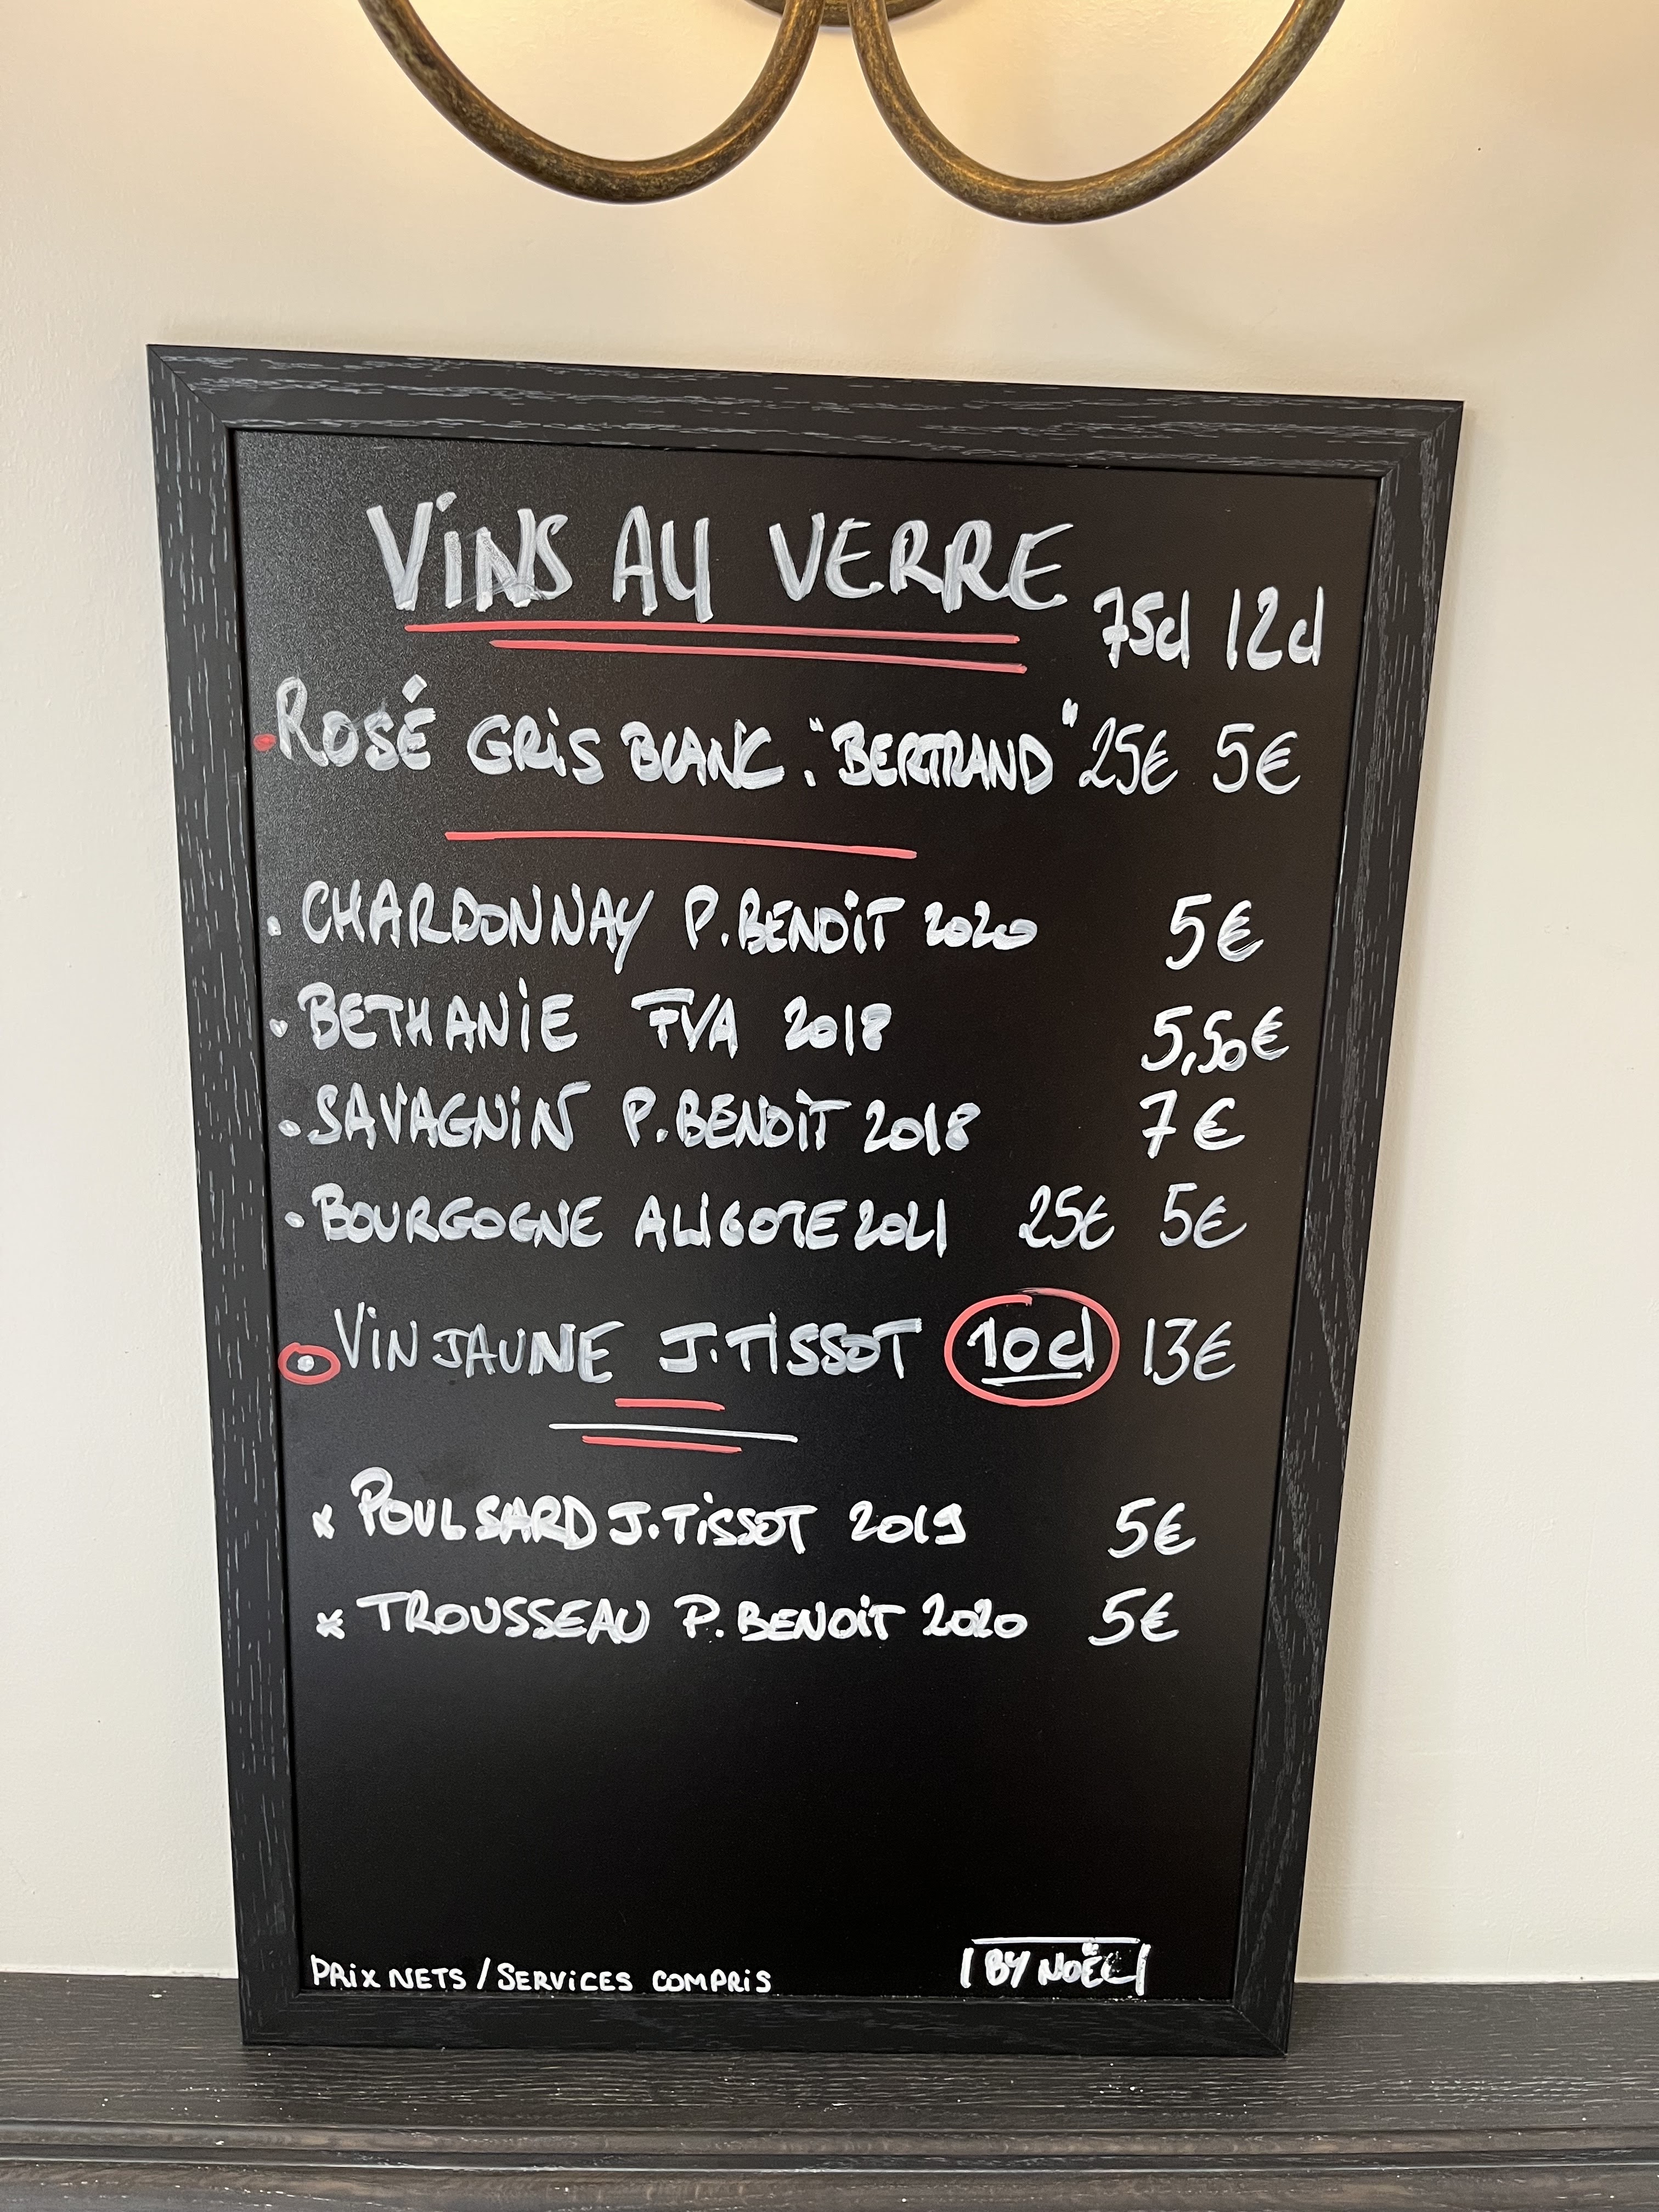 VINS AU VERRE
75cl 12cl
ROSÉ GRIS BLANC. "BERTRAND" 25€ 5€
CHARDONNAY P. BENOIT 2020 5€
BETHANIE FVA 2018 5,50€
SAVAGNIN P. BENOIT 2018 7€
BOURGOGNE ALIGOTE 2021 25€ 5€
VIN JAUNE J. TISSOT 10cl 13€
x POULSARD J. TISSOT 2019 5€
x TROUSSEAU P. BENOIT 2020 5€
PRIX NETS / SERVICES COMPRIS
BY NOËL